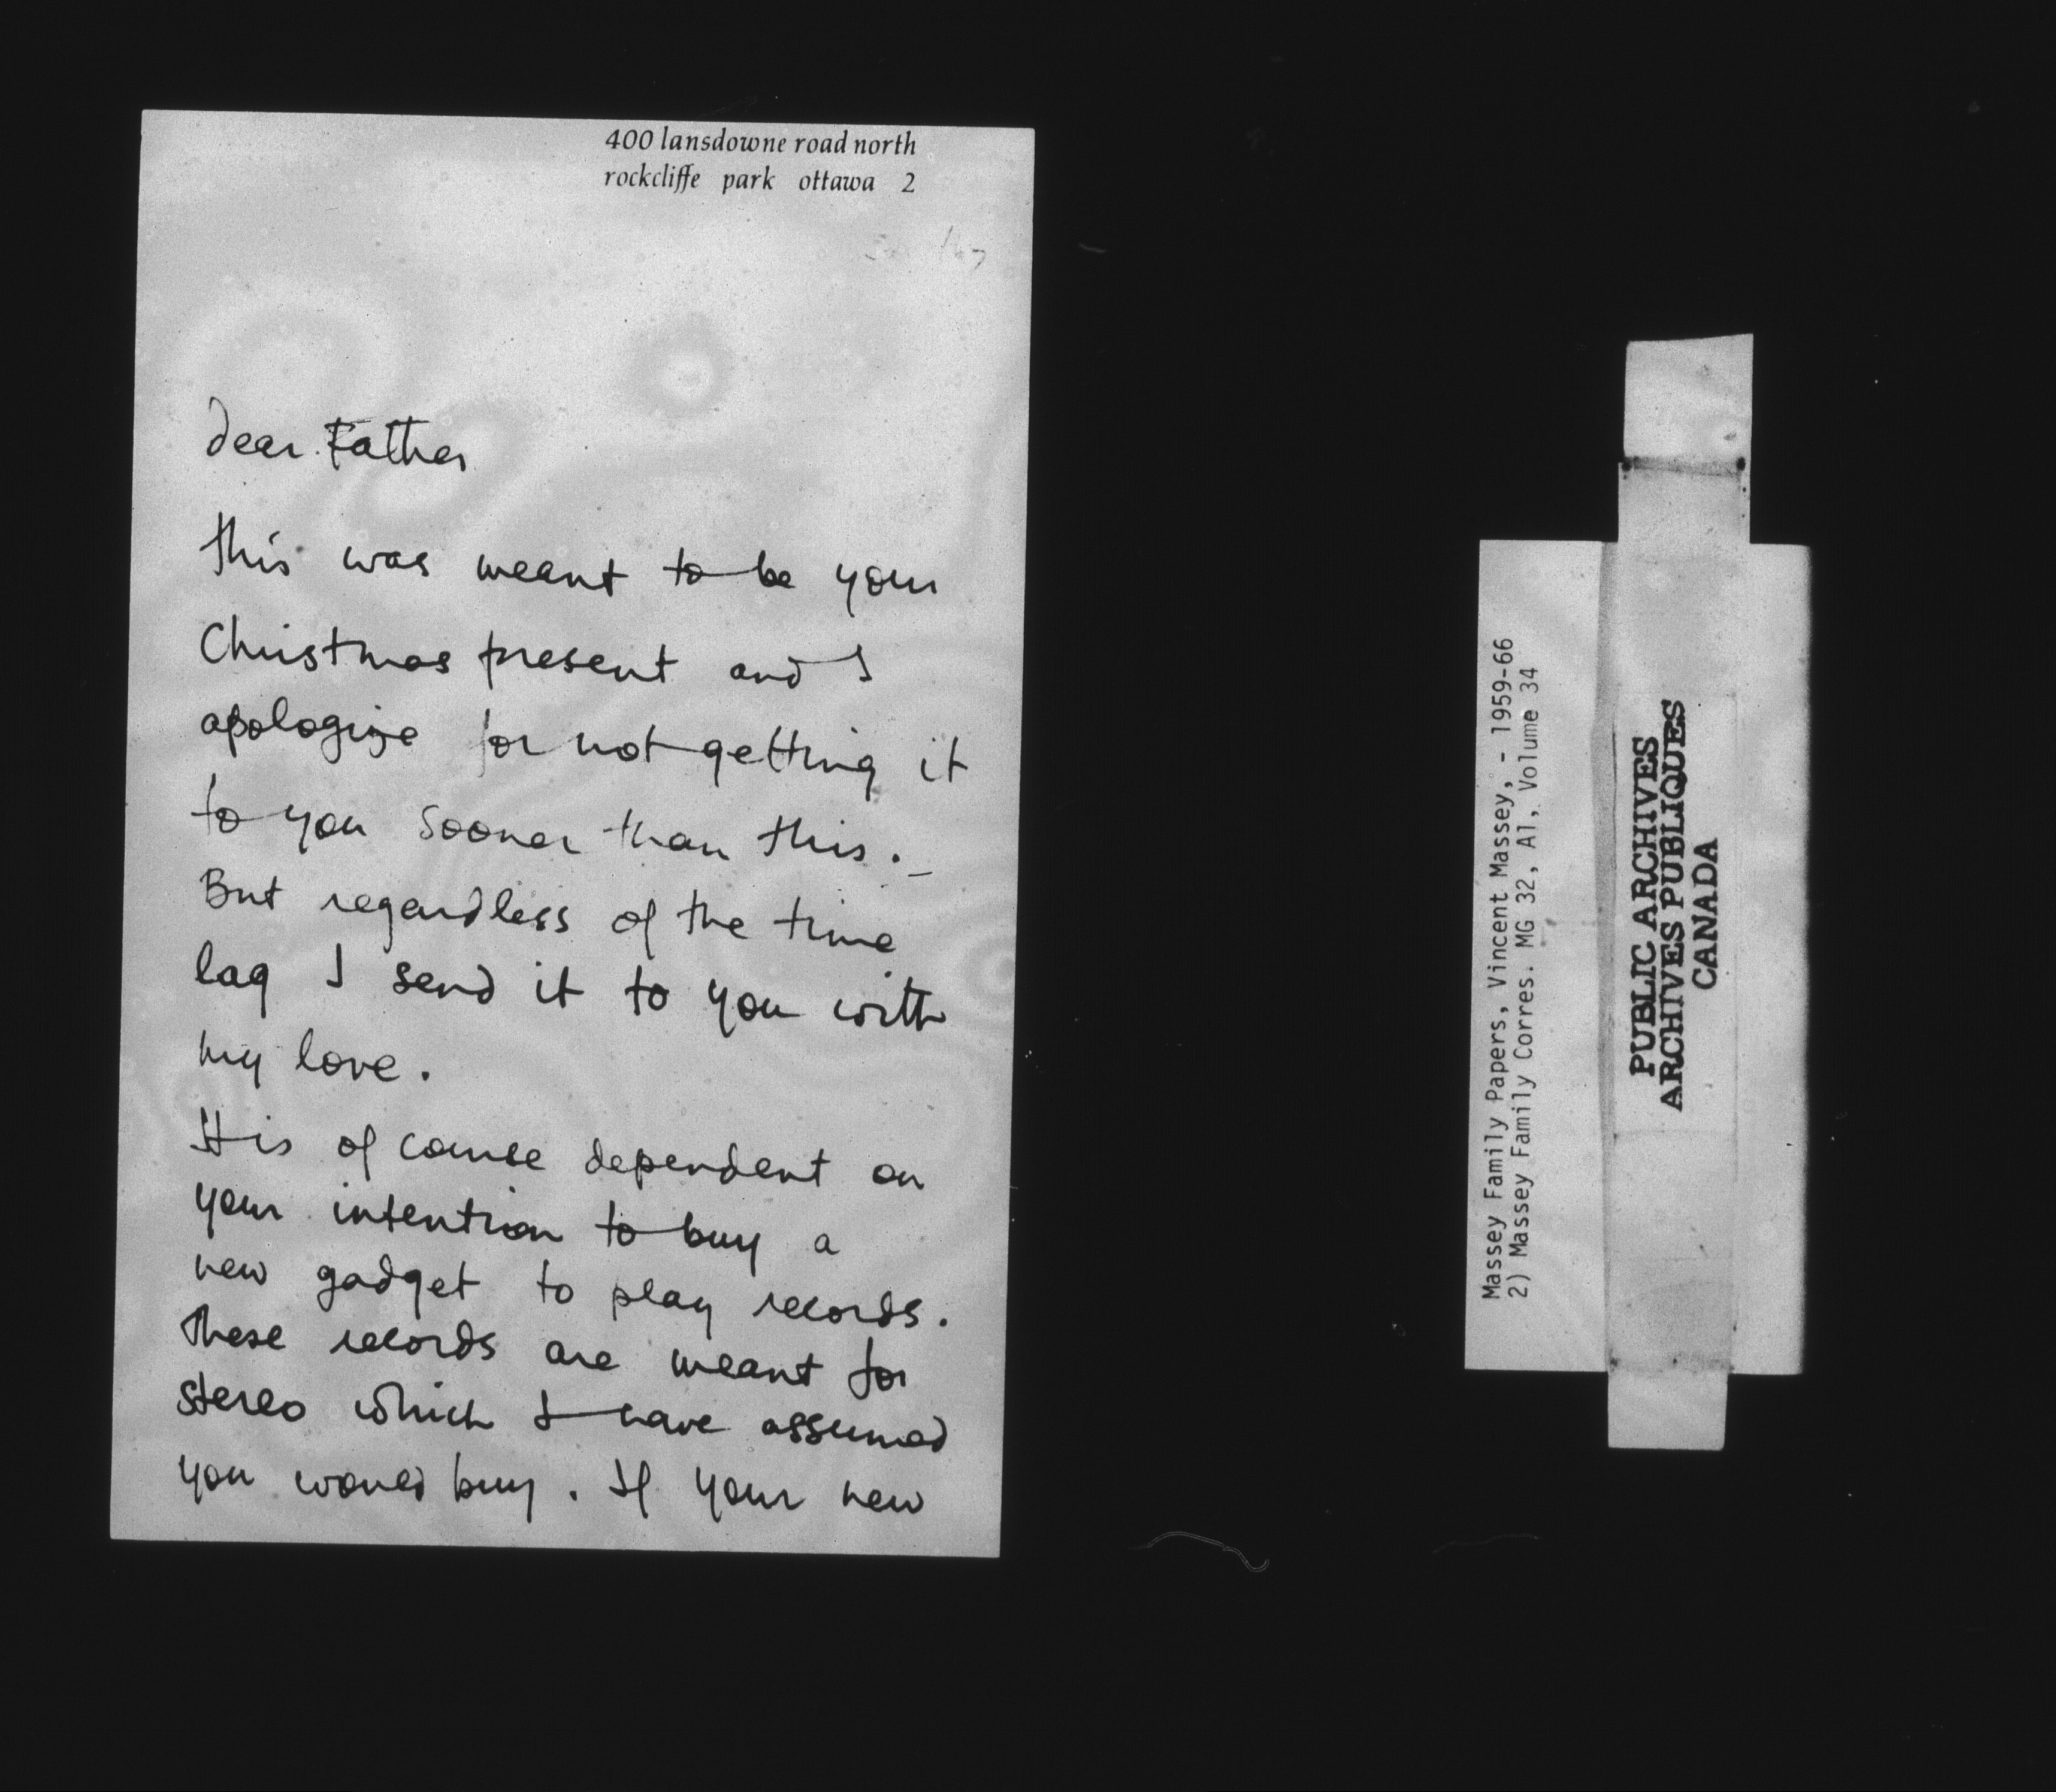 400 lansdowne road north
rockcliffe park ottawa 2
dear Father
this was meant to be your
Christmas present and I
apologize for not getting it
to you sooner than this. _
But regardless of the time
lag I send it to you with
my love.
It is of course dependent on
your intention to buy a
new gadget to play records.
These records are meant for
stereo which I have assumed
you would buy. If your new
Massey Family Papers, Vincent Massey, - 1959-66
2) Massey Family Corres. MG 32, A1, Volume 34
PUBLIC ARCHIVES
ARCHIVES PUBLIQUES
CANADA